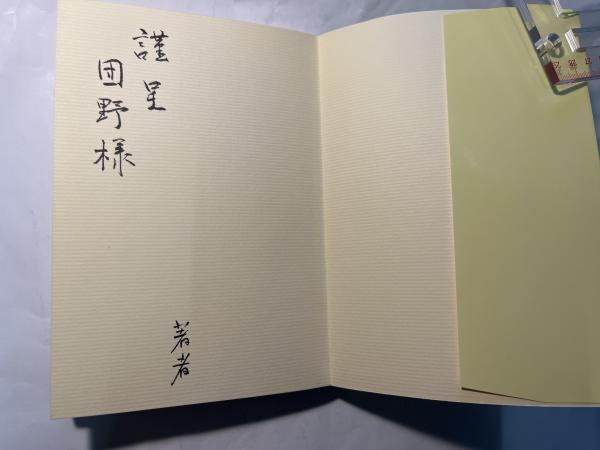 謹呈
団野様
著者